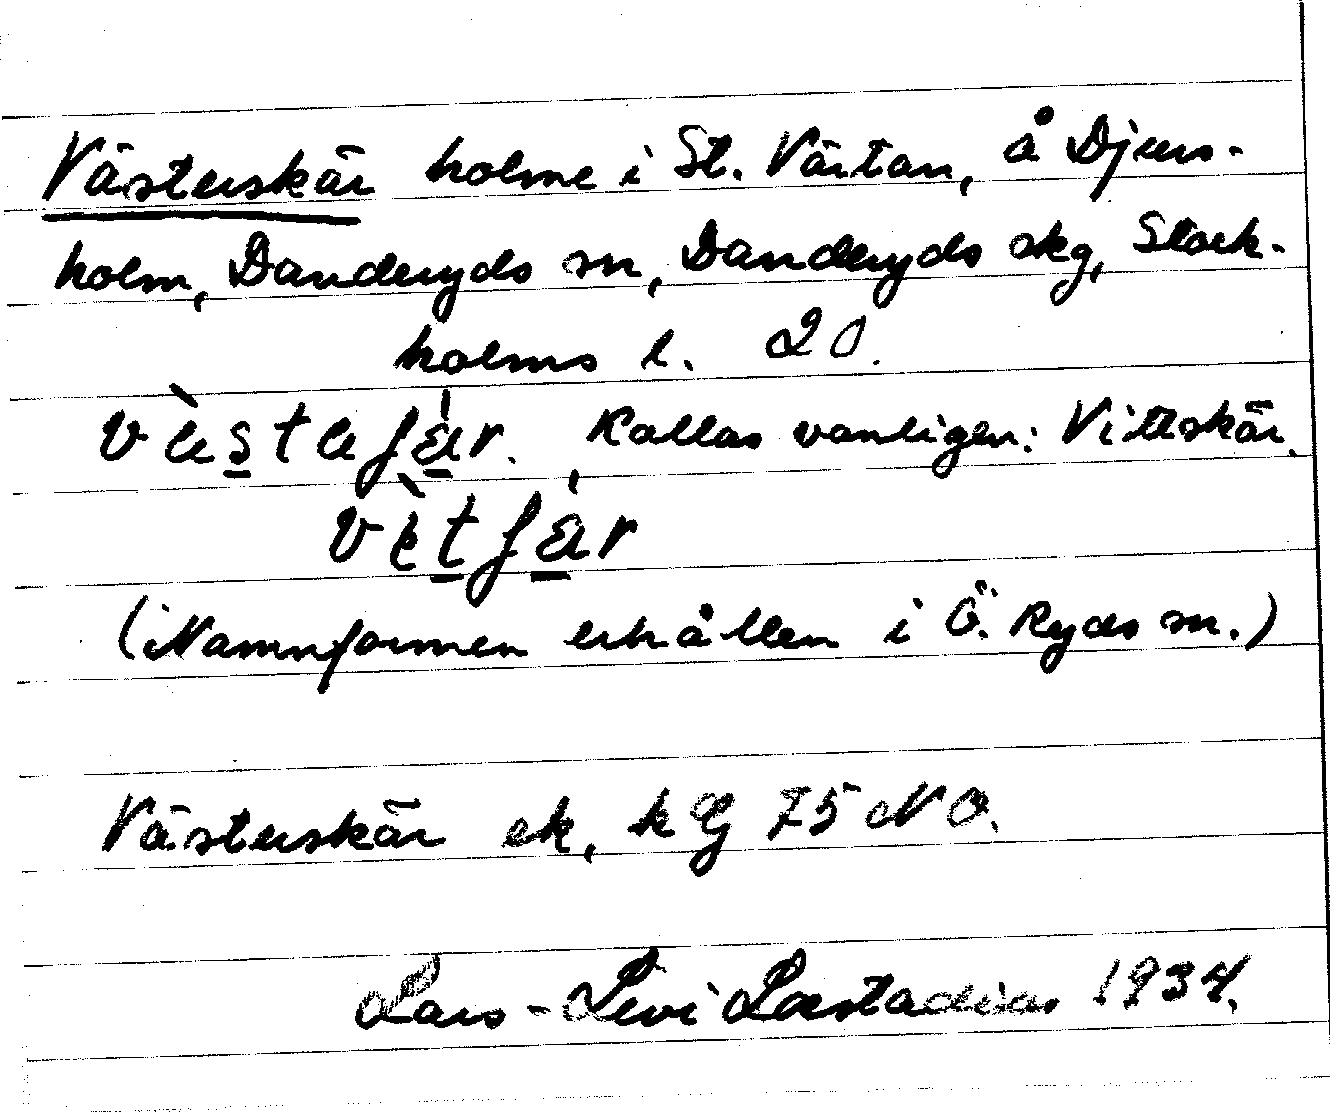 Västerskär holme i St. Värtan, å Djurs-
holm, Danderyds sn, Danderyds skg, Stock-
holms l. 20.
Kallas vanligen: Vittskär.
(Namnformen erhållen i Ö. Ryds sn.)
Västerskär ek, kG 75 NO.
Lars-Levi Læstadius 1934.